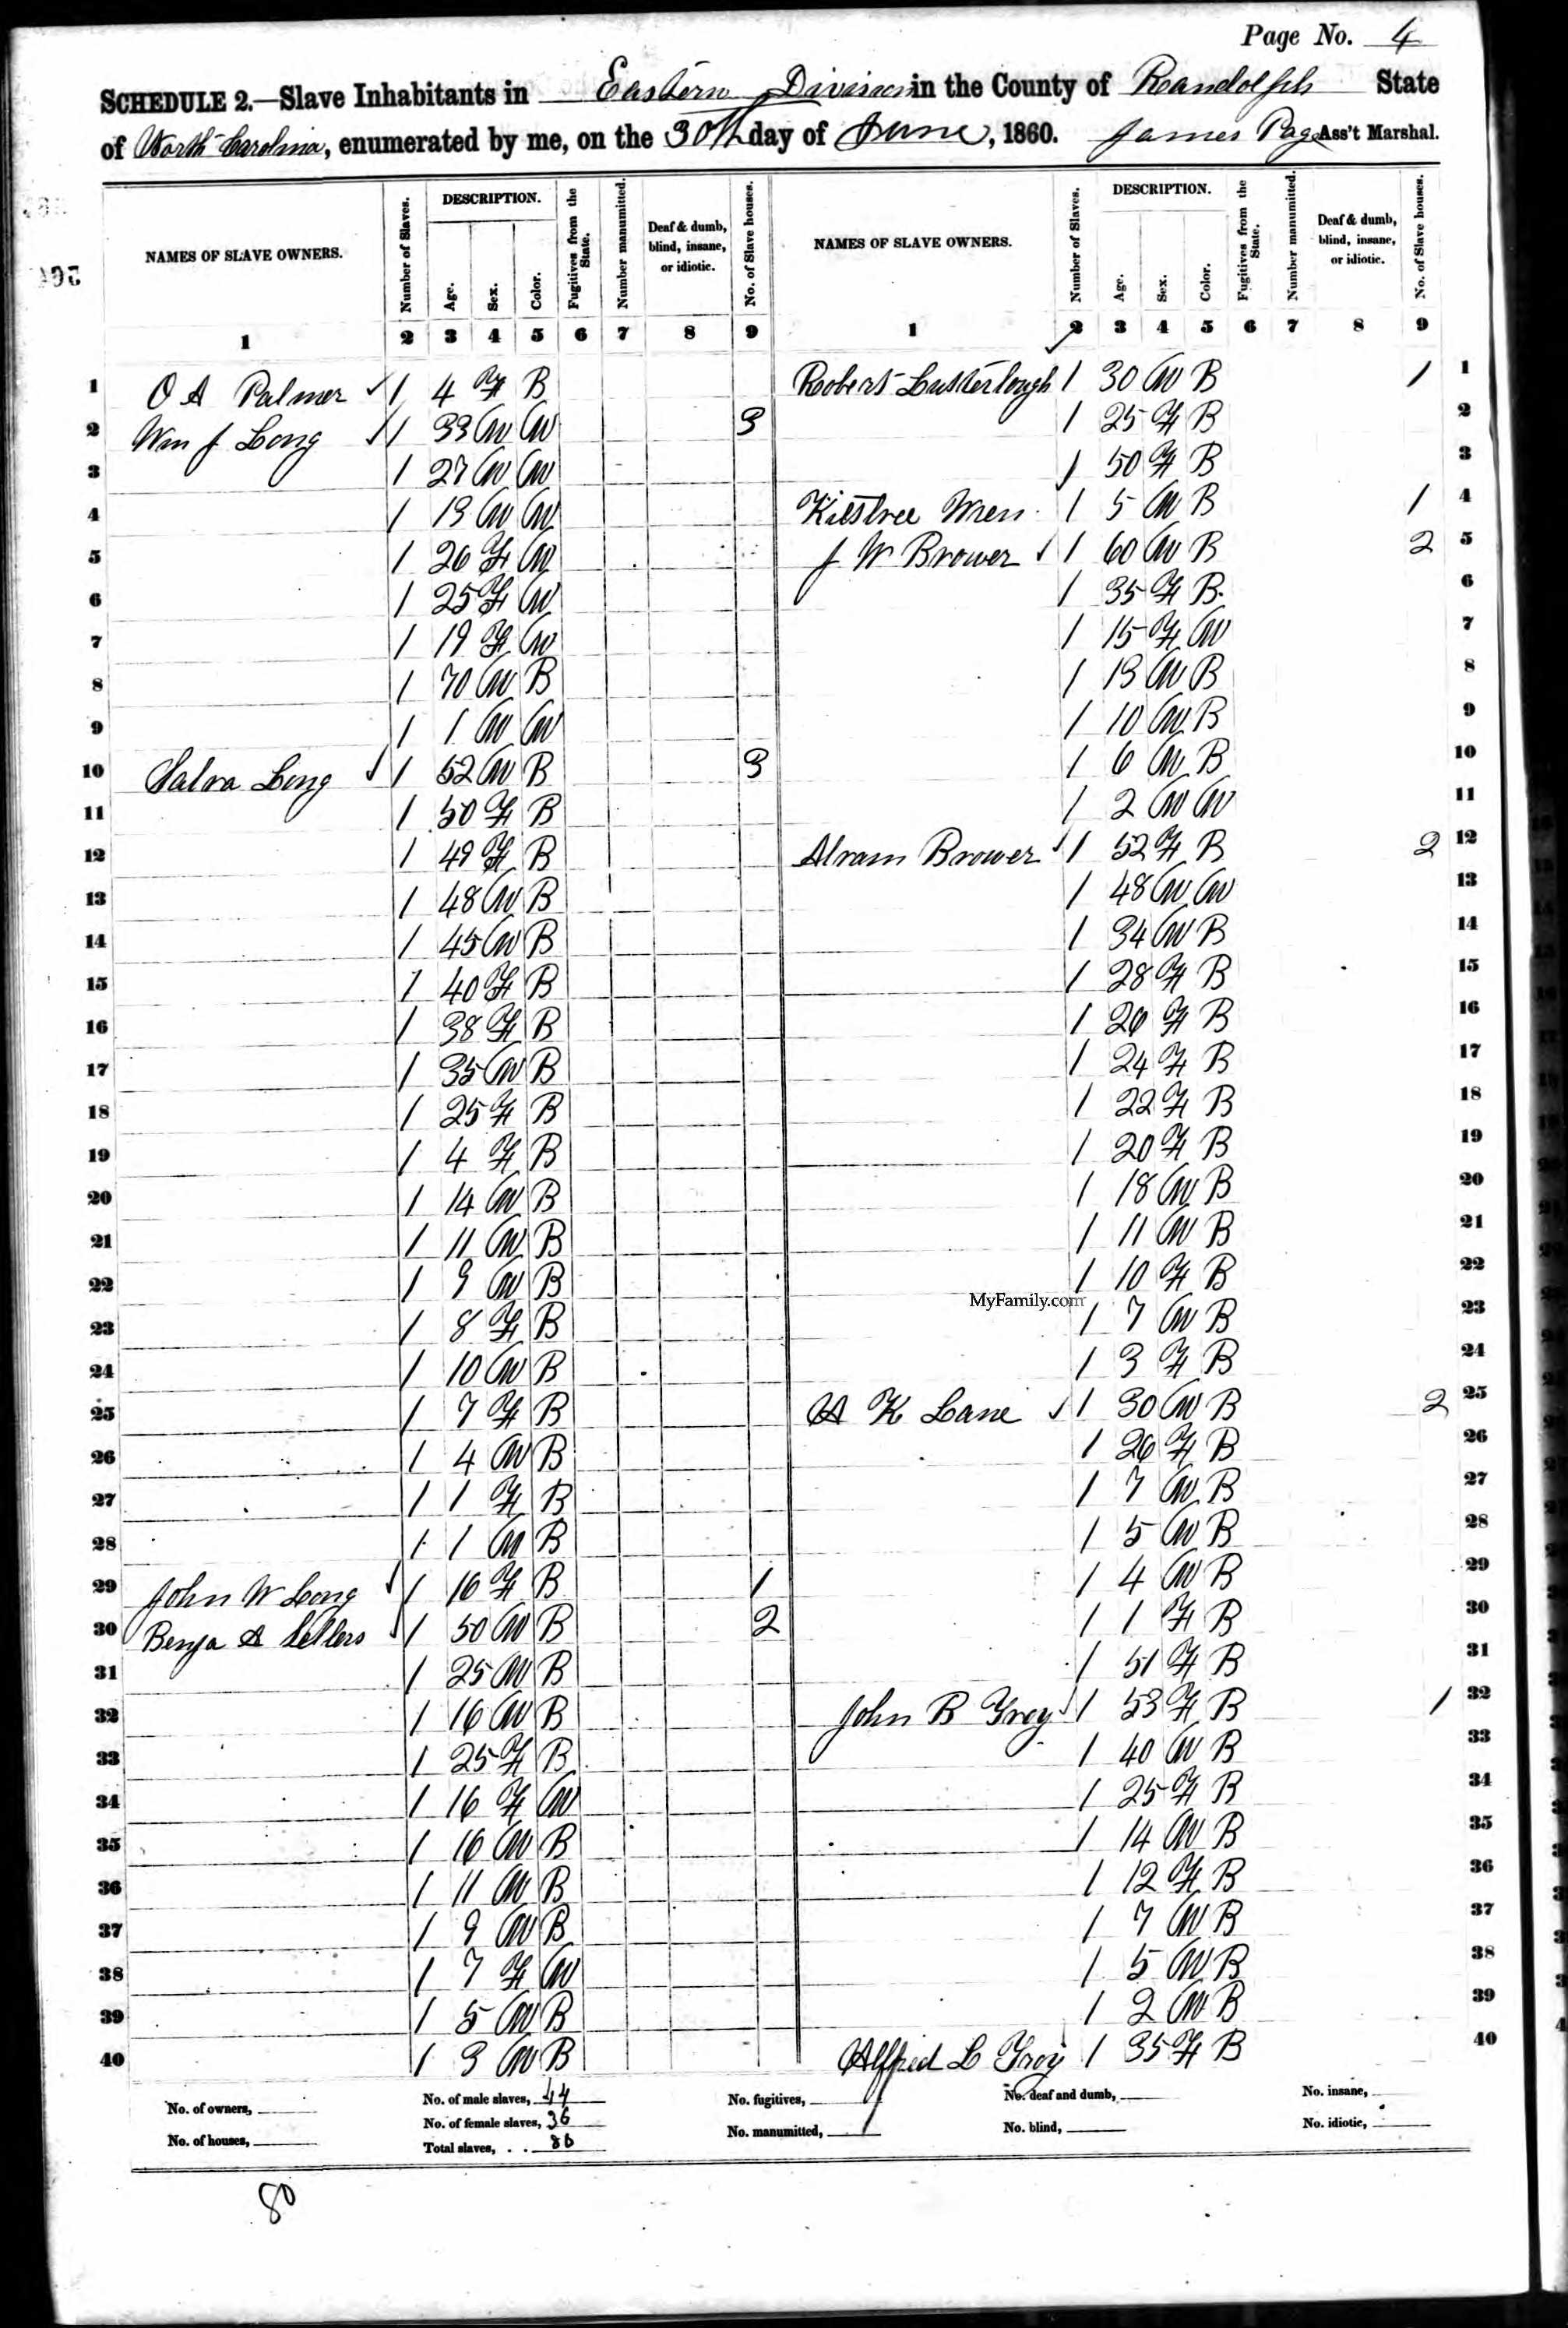 Page No. 4
SCHEDULE 2.—Slave Inhabitants in Eastern Division in the County of Randolph State
of North Carolina, enumerated by me, on the 30th day of June, 1860. James Page Ass't Marshal.
NAMES OF SLAVE OWNERS. Number of Slaves. DESCRIPTION. Age. Sex. Color. Fugitives from the State. Number manumitted. Deaf & dumb, blind, insane, or idiotic. No. of Slave houses. NAMES OF SLAVE OWNERS. Number of Slaves. DESCRIPTION. Age. Sex. Color. Fugitives from the State. Number manumitted. Deaf & dumb, blind, insane, or idiotic. No. of Slave houses.
1 2 3 4 5 6 7 8 9 1 2 3 4 5 6 7 8 9
1 O A Palmer 1 4 F B Robert 1 30 M B 1 1
2 Wm J Long 1 33 M M 3 1 25 F B 2
3 1 27 M M 1 50 F B 3
4 1 13 M M Wren 1 5 M B 1 4
5 1 26 F M J W Brower 1 60 M B 2 5
6 1 25 F M 1 35 F B 6
7 1 19 F M 1 15 F M 7
8 1 70 M B 1 13 M B 8
9 1 1 M M 1 10 M B 9
10 Long 1 52 M B 3 1 6 M B 10
11 1 50 F B 1 2 M M 11
12 1 49 F B Brower 1 52 F B 2 12
13 1 48 M B 1 48 M M 13
14 1 45 M B 1 34 M B 14
15 1 40 F B 1 28 F B 15
16 1 38 F B 1 26 F B 16
17 1 35 M B 1 24 F B 17
18 1 25 F B 1 22 F B 18
19 1 4 F B 1 20 F B 19
20 1 14 M B 1 18 M B 20
21 1 11 M B 1 11 M B 21
22 1 9 M B 1 10 F B 22
MyFamily.com
23 1 8 F B 1 7 M B 23
24 1 10 M B 1 3 F B 24
25 1 7 F B A K Lane 1 30 M B 2 25
26 1 4 M B 1 26 F B 26
27 1 1 F B 1 7 M B 27
28 1 1 M B 1 5 M B 28
29 John W Long 1 16 F B 1 1 4 M B 29
30 Benja A Sellers 1 50 M B 2 1 1 F B 30
31 1 25 M B 1 51 F B 31
32 1 16 M B John B Troy 1 53 F B 1 32
33 1 25 F B 1 40 M B 33
34 1 16 F M 1 25 F B 34
35 1 16 M B 1 14 M B 35
36 1 11 M B 1 12 F B 36
37 1 9 M B 1 7 M B 37
38 1 7 F M 1 5 M B 38
39 1 5 M B 1 2 M B 39
40 1 3 M B Alfred L Troy 1 35 F B 40
No. of owners, No. of male slaves, 44 No. fugitives, No. deaf and dumb, No. insane,
No. of houses, No. of female slaves, 36 No. manumitted, No. blind, No. idiotic,
Total slaves, . . 80
80